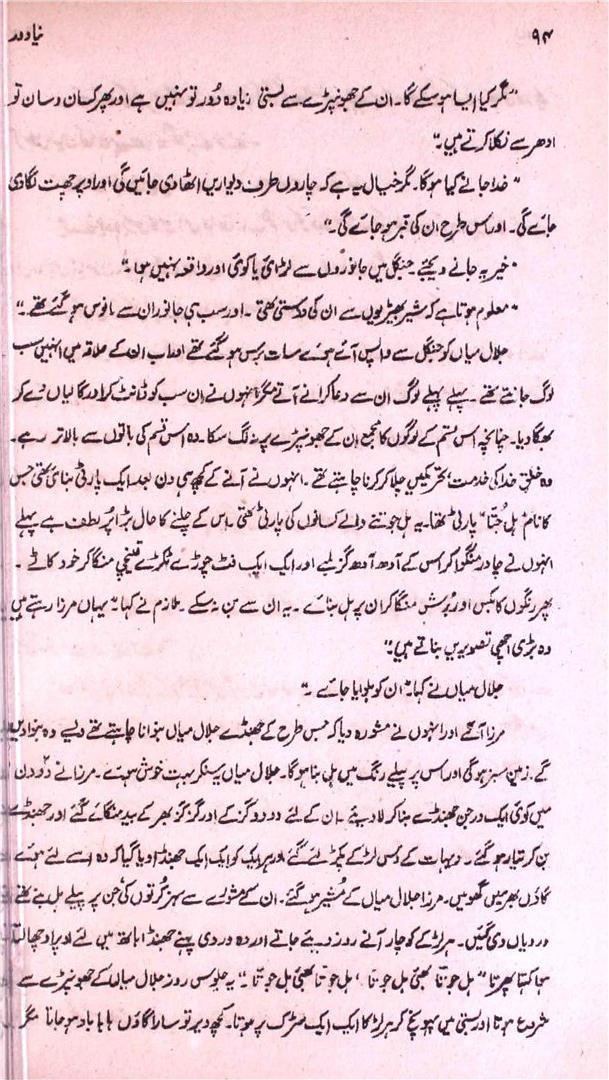 ۹۴ نیا دور
"مگر کیا ایسا ہو سکے گا۔ ان کے جھونپڑے سے بستی زیادہ دُور تو نہیں ہے اور پھر کسان وسان تو
ادھر سے نکلا کرتے ہیں۔"
"خدا جانے کیا ہوگا۔ مگر خیال یہ ہے کہ چاروں طرف دیواریں اٹھا دی جائیں گی اور اوپر چھت لگا دی
جائے گی۔ اور اس طرح ان کی قبر ہو جائے گی۔"
"خیر یہ جانے دیجئے۔ جنگل میں جانوروں سے لڑائی یا کوئی اور واقعہ نہیں ہوا۔"
"معلوم ہوتا ہے کہ شیر بھیڑیوں سے ان کی دوستی تھی۔ اور سب ہی جانور ان سے مانوس ہو گئے تھے۔"
جلال میاں کو جنگل سے واپس آئے ہوئے سات برس ہو گئے تھے اور اب ان کے علاقہ میں انہیں سب
لوگ جانتے تھے۔ پہلے پہلے لوگ ان سے دعا کرانے آتے مگر انہوں نے ان سب کو ڈانٹ کر اور گالیاں دے کر
بھگا دیا۔ چنانچہ اس قسم کے لوگوں کا مجمع ان کے جھونپڑے پر نہ لگ سکا۔ وہ اس قسم کی باتوں سے بالاتر رہے۔
وہ خلقِ خدا کی خدمت، تحریکیں چلا کر کرنا چاہتے تھے۔ انہوں نے آنے کے کچھ ہی دن بعد ایک پارٹی بنائی تھی جس
کا نام "ہل جُتّا" پارٹی تھا۔ یہ ہل جوتنے والے کسانوں کی پارٹی تھی۔ اس کے چلنے کا حال بڑا پُر لطف ہے پہلے
انہوں نے چادر منگوا کر اس کے آدھ آدھ گز لمبے اور ایک ایک فٹ چوڑے ٹکڑے قینچی منگا کر خود کاٹے۔
پھر رنگوں کا بکس اور بُرش منگا کر ان پر ہل بنائے۔ یہ ان سے بن نہ سکے۔ ملازم نے کہا۔ "یہاں مرزا رہتے ہیں
وہ بڑی اچھی تصویریں بناتے ہیں۔"
جلال میاں نے کہا۔ "ان کو بلوایا جائے۔"
مرزا آگئے اور انہوں نے مشورہ دیا کہ جس طرح کے جھنڈے جلال میاں بنوانا چاہتے تھے ویسے وہ بنوا دیں
گے۔ زمین سبز ہوگی اور اس پر پیلے رنگ میں ہل بنا ہوگا۔ جلال میاں یہ سنکر بہت خوش ہوئے۔ مرزا نے دو دن
میں کوئی ایک درجن جھنڈے بنا کر لا دیئے۔ ان کے لئے دو دو گز کے اور گز گز بھر کے بید منگائے گئے اور جھنڈے
بن کر تیار ہو گئے۔ دیہات کے دس لڑکے پکڑ لئے گئے اور ہر ایک کو ایک ایک جھنڈا دیا گیا کہ وہ اسے لئے ہوئے
گاؤں بھر میں گھومیں۔ مرزا جلال میاں کے مُشیر ہو گئے۔ ان کے مشورے سے سبز کُرتوں کی جن پر پیلے ہل بنے تھے
وردیاں دی گئیں۔ ہر لڑکے کو چار آنے روز دیئے جاتے اور وہ وردی پہنے جھنڈا ہاتھ میں لئے اوپر اوچھالتا
ہوا کہتا پھرتا "ہل جوتّا بھئی ہل جوتّا، ہل جوتّا بھئی ہل جوتّا۔" یہ جلوس روز جلال میاں کے جھونپڑے سے
شروع ہوتا اور بستی میں پہونچ کر ہر لڑکا ایک ایک سڑک پر ہوتا۔ کچھ دیر تو سارا گاؤں ہاہا ہا ہو جاتا مگر